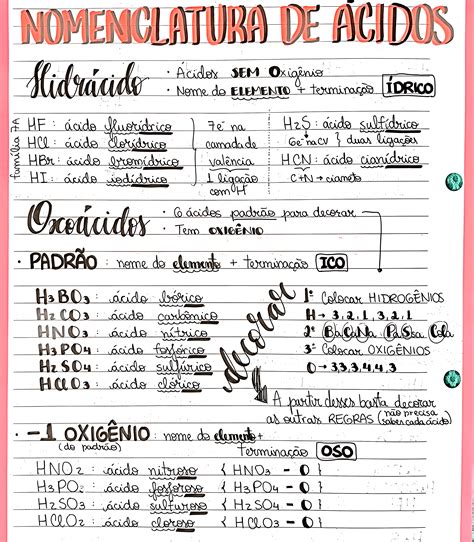 NOMENCLATURA DE ÁCIDOS
Hidrácido
· Ácidos SEM Oxigênio
· Nome do ELEMENTO + terminação ÍDRICO
família 7A
HF : ácido fluorídrico
HCl : ácido clorídrico
HBr : ácido bromídrico
HI : ácido iodídrico
7e⁻ na
camada de
valência
1 ligação
com H
H2S : ácido sulfídrico
6e⁻ na CV } duas ligações
HCN : ácido cianídrico
C+N → cianeto
Oxoácidos
· 6 ácidos padrão para decorar
· Tem OXIGÊNIO
· PADRÃO : nome do elemento + terminação ICO
H3BO3 : ácido bórico
H2CO3 : ácido carbônico
HNO3 : ácido nítrico
H3PO4 : ácido fosfórico
H2SO4 : ácido sulfúrico
HClO3 : ácido clórico
decorar
1º Colocar HIDROGÊNIOS
H → 3, 2, 1, 3, 2, 1
2º BoCaNa PaSsa Cola
3º Colocar OXIGÊNIOS
O → 3, 3, 3, 4, 4, 3
A partir desses basta decorar
as outras REGRAS (não precisa
saber cada ácido)
· -1 OXIGÊNIO : nome do elemento +
(do padrão)
terminação OSO
HNO2 : ácido nitroso { HNO3 - O }
H3PO3 : ácido fosforoso { H3PO4 - O }
H2SO3 : ácido sulfuroso { H2SO4 - O }
HClO2 : ácido cloroso { HClO3 - O }